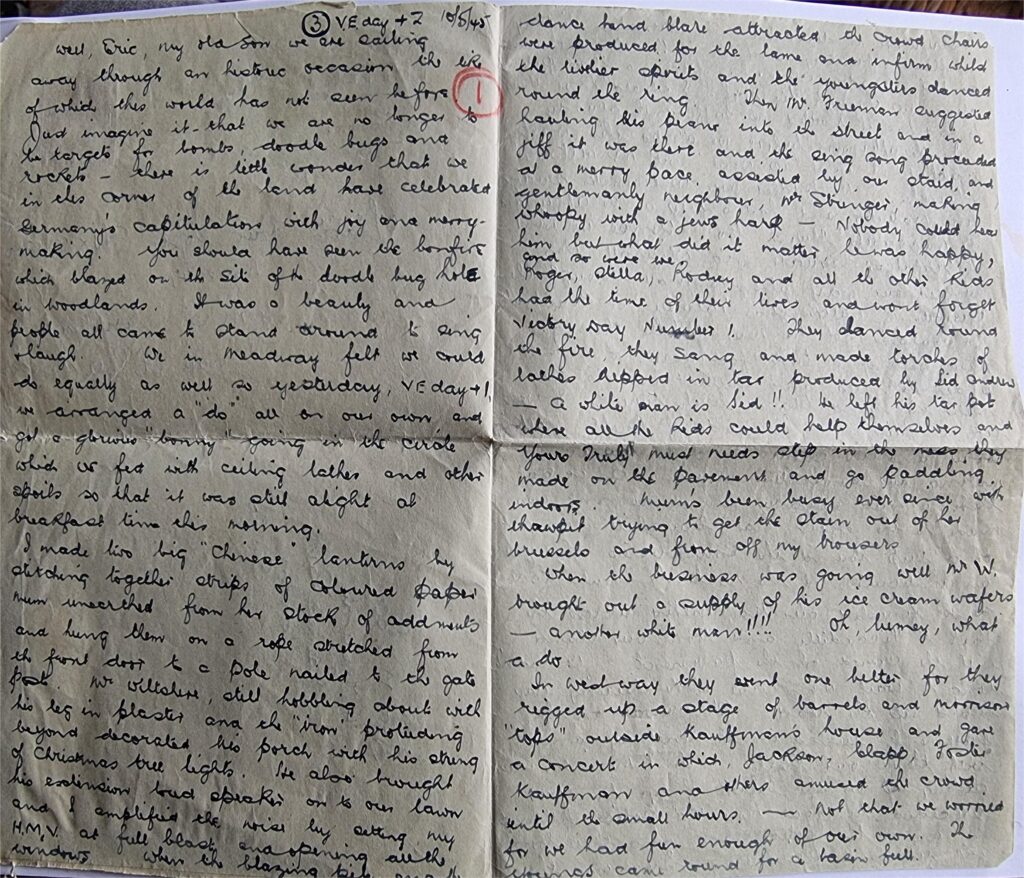 ③ VE day + 2 10/5/45
Well, Eric, my old son we are sailing
away through an historic occasion the like
of which this world has not seen before
1
Just imagine it - that we are no longer to
be targets for bombs, doodle bugs and
rockets – there is little wonder that we
in this corner of the land have celebrated
Germany's capitulations with joy and merry-
making. You should have seen the bonfire
which blazed on the site of the doodle bug hole
in woodlands. It was a beauty and
people all came to stand around to sing
& laugh. We in Meadway felt we could
do equally as well so yesterday, VE day + 1,
we arranged a "do" all on our own and
got a glorious "bonny" going in the circle
which we fed with ceiling lathes and other
spoils so that it was still alight at
breakfast time this morning.
I made two big "Chinese" lanterns by
stitching together strips of coloured paper
mum unearthed from her stock of oddments
and hung them on a rope stretched from
the front door to a pole nailed to the gate
post. Mr Wiltshire, still hobbling about with
his leg in plaster and the "iron" protruding
beyond decorated his porch with his string
of Christmas tree lights. He also brought
his extension loud speaker on to our lawn
and I amplified the noise by setting my
H.M.V. at full blast and opening all the
windows. When the blazing
dance band blare attracted the crowd chairs
were produced for the lame and infirm whilst
the livelier spirits and the youngsters danced
round the ring. Then Mr. Freeman suggested
hauling his piano into the street and in a
jiff it was there and the sing song proceeded
at a merry pace assisted by our staid, and
gentlemanly neighbour, Mr Stringer, making
whoopy with a jews harp – Nobody could hear
him but what did it matter, he was happy,
and so were we.
Roger, Stella, Rodney and all the other kids
had the time of their lives and wont forget
Victory Day Number 1. They danced round
the fire, they sang and made torches of
lathes dipped in tar produced by Sid Andrew
– a white man is Sid!! He left his tar pot
where all the kids could help themselves and
"Yours Truly" must needs step in the mess they
made on the pavement and go paddling
indoors. Mum's been busy ever since with
thawpit trying to get the stain out of her
brussels and from off my trousers
When the business was going well Mr W.
brought out a supply of his ice cream wafers
– another white man!!!! Oh, lumey, what
a do
In Westway they went one better for they
rigged up a stage of barrels and morrison
"tops" outside Kauffman's house and gave
a concert in which, Jackson, Clapp, Foster
Kauffman and others amused the crowd
until the small hours. – not that we worried
for we had fun enough of our own. The
youngs came round for a basin full.